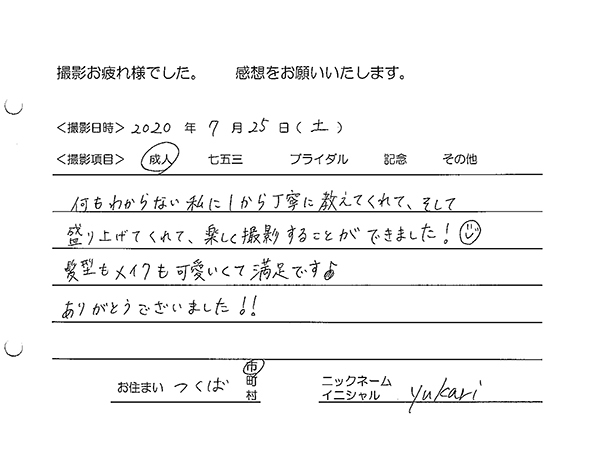 撮影お疲れ様でした。 感想をお願いいたします。
＜撮影日時＞ 2020 年 7 月 25 日 ( 土 )
＜撮影項目＞ 成人 七五三 ブライダル 記念 その他
何もわからない私に1から丁寧に教えてくれて、そして
盛り上げてくれて、楽しく撮影することができました！
髪型もメイクも可愛いくて満足です♪
ありがとうございました!!
お住まい つくば 市 町 村 ニックネーム イニシャル yukari